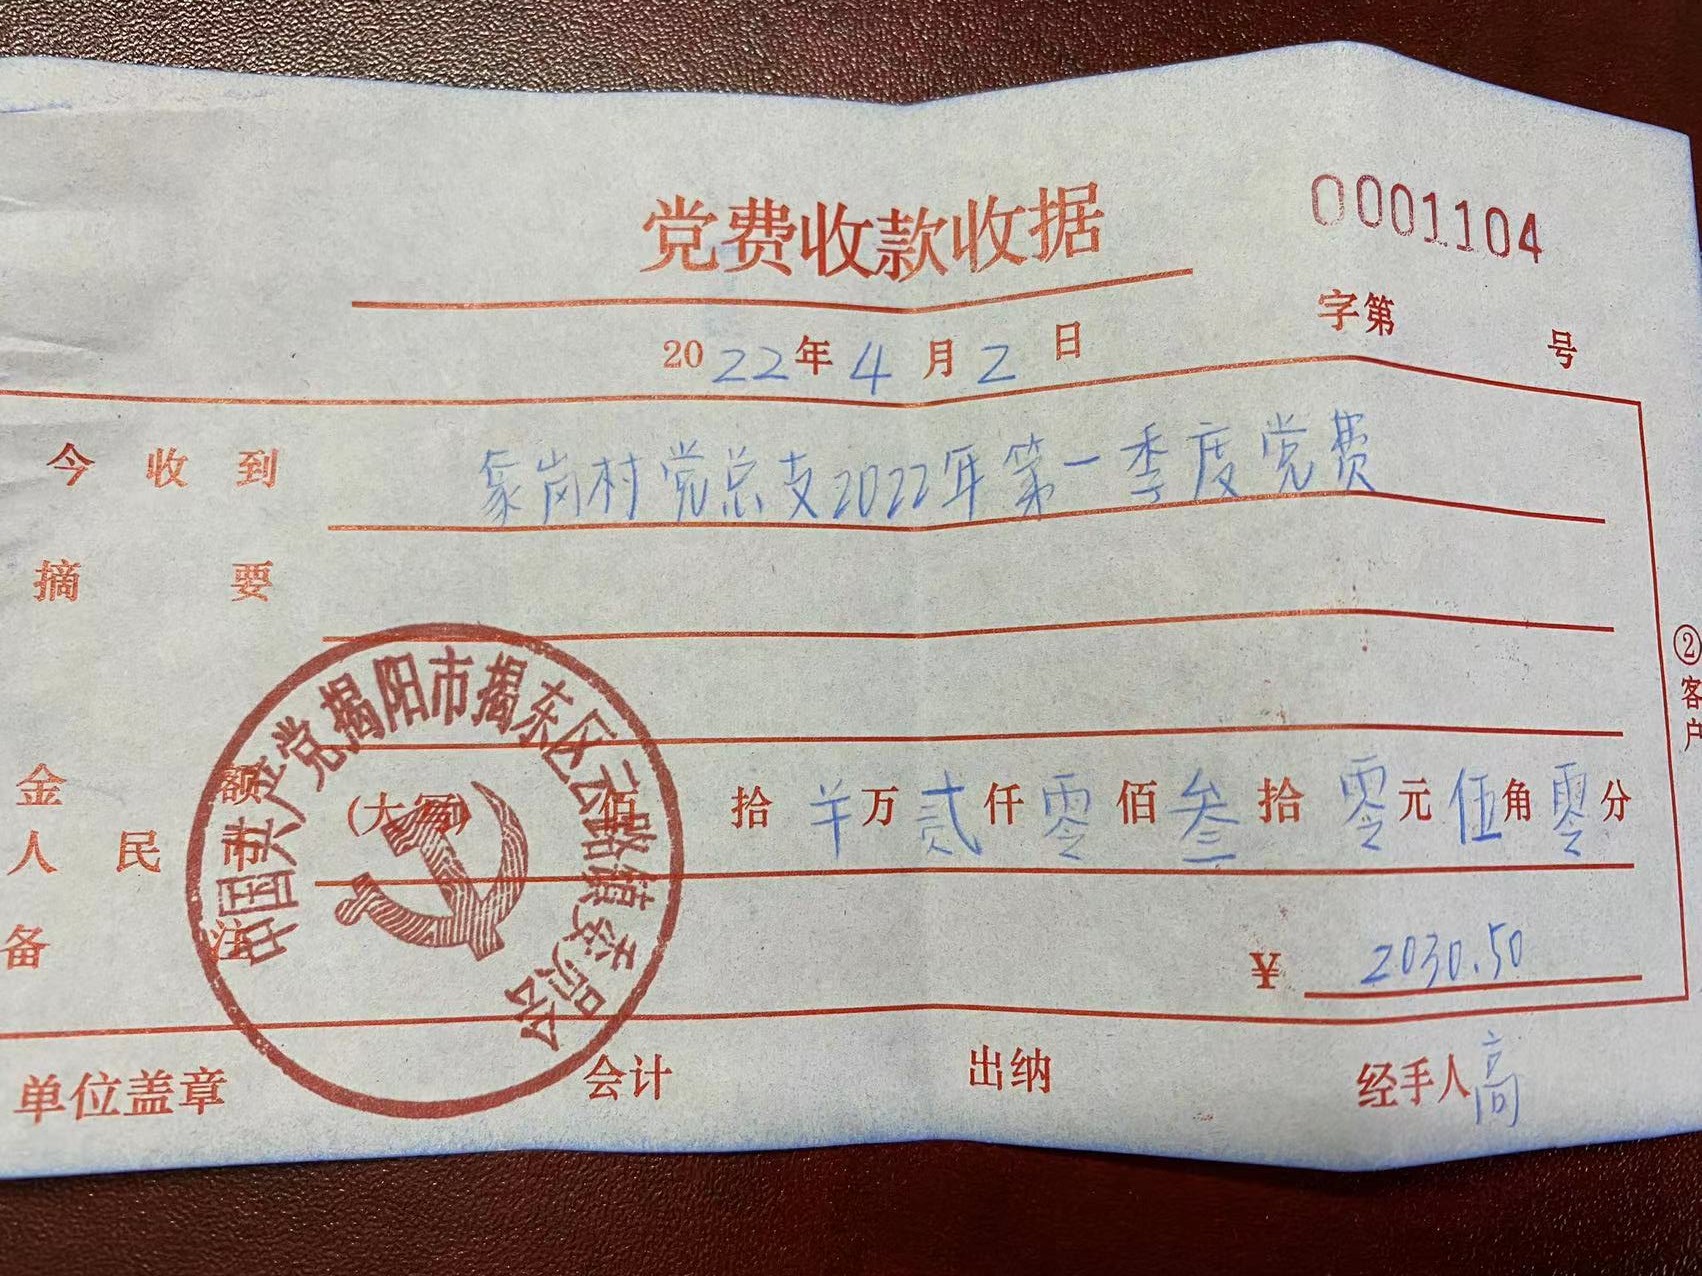 党费收款收据
0001104
字第 号
2022年4月2日
今收到 象岗村党总支2022年第一季度党费
摘要
金额(大写) 佰 拾 羊万贰仟零佰叁拾零元伍角零分
人民币
备注 ¥ 2030.50
单位盖章 会计 出纳 经手人 高
中国共产党揭阳市揭东区云路镇委员会
②客户